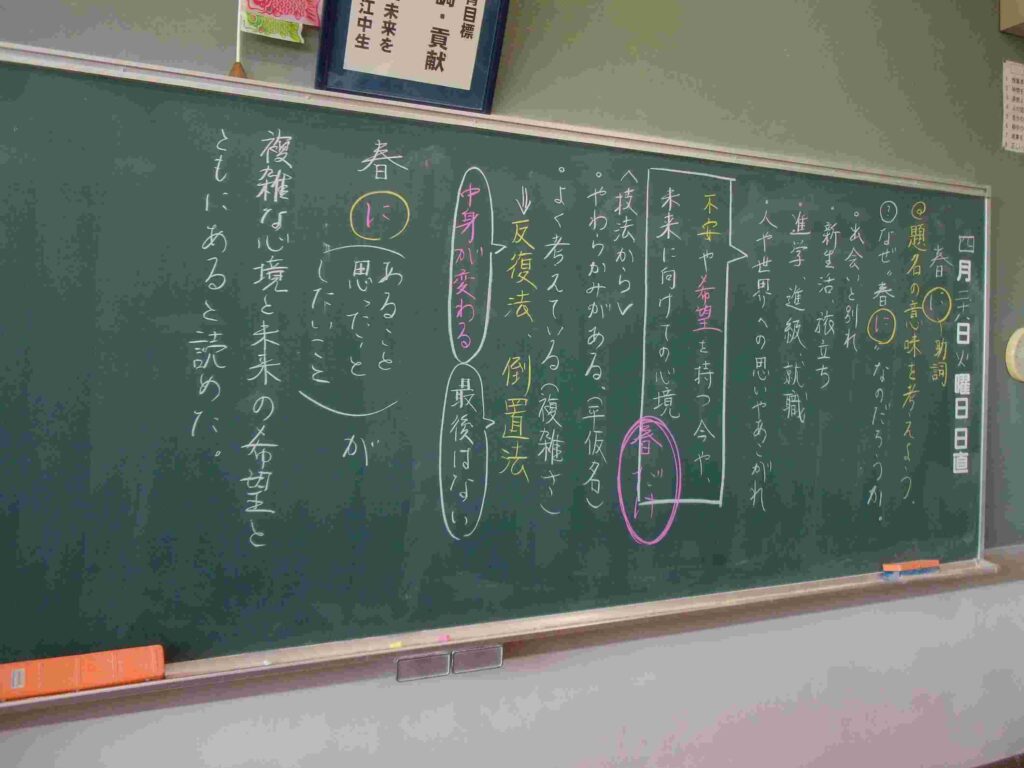 育目標
・貢献
未来を
江中生
四月二十日火曜日日直
春に 助詞
◎題名の意味を考えよう。
なぜ。春に。なのだろうか。
・出会いと別れ
・新生活、旅立ち
・進学、進級、就職
・人や世界への思いやあこがれ
不安や希望を持つ今や、
未来に向けての心境
春だけ
〈技法から〉
・やわらかみがある、(平仮名)
・よく考えている(複雑さ)
→反復法、倒置法
中身が変わる
最後はない
春に(あること
思ったこと
したいこと)が
複雑な心境と未来の希望と
ともにあると読めた。